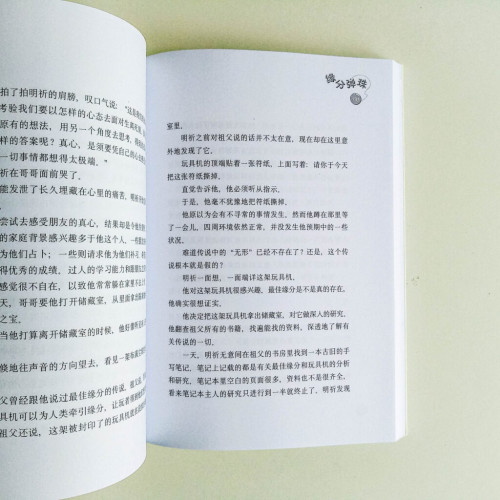 拍了拍明祈的肩膀，叹口气说：“这是
考验我们要以怎样的心态去面对生
原有的想法，用另一个角度去思考，得
样的答案呢？真心，是须要凭自己的心
一切事情都想得太极端。”
祈在哥哥面前哭了。
能发泄了长久埋藏在心里的痛苦，明祈
尝试去感受朋友的真心，结果却是令他
的家庭背景感兴趣多于他这个人，一些
为他们占卜；一些则请求他为他们祈
得优秀的成绩，过人的学习能力和
感觉很不自在，以致他常常躲在家里不
天，哥哥要他打开储藏室，从里面拿出
之宝。
当他打算离开储藏室的时候，他好像听
倏地往声音的方向望去，看见一架布满
父曾经跟他说过最佳缘分的传说，
具机可以为人类牵引缘分，让玩者
祖父还说，这架被封印了的玩具机
缘分弹珠
室里。
明祈之前对祖父说的话并不太在意，现在却在这里意
外地发现了它。
玩具机的顶端贴着一张符纸，上面写着：请你于今天
把这张符纸撕掉。
直觉告诉他，他必须听从指示。
于是，他毫不犹豫地把符纸撕掉。
他原以为会有不寻常的事情发生，然而他蹲在那里等
了一会儿，四周环境依然正常，并没发生他预期中的一些
状况。
难道传说中的“无形”已经不存在了？还是，这个传
说根本就是假的？
明祈一面想，一面端详这架玩具机。
他对这架玩具机很感兴趣，最佳缘分是不是真的存在，
他确实很想证实。
他决定把这架玩具机拿出储藏室，对它做深入的研究。
他翻查祖父所有的书籍，找遍能找的资料，深透地了解有
关传说的一切。
一天，明祈无意间在祖父的书房里找到一本古旧的手
写笔记，笔记上记载的都是有关最佳缘分和玩具机的分析
和研究。笔记本里空白的页面很多，资料也不是很齐全。
看来笔记本主人的研究只进行到一半就终止了。明祈发现